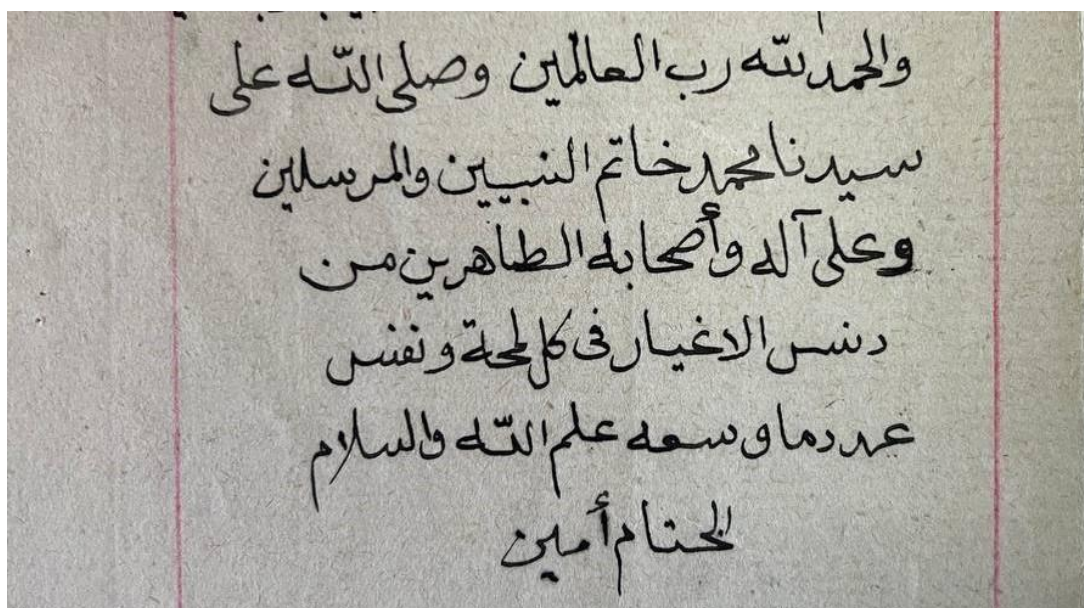 والحمد لله رب العالمين وصلى الله على
سيدنا محمد خاتم النبيين والمرسلين
وعلى آله وأصحابه الطاهرين من
دنس الاغيار فى كل لمحة ونفس
عدد ما وسعه علم الله والسلام
الختام أمين